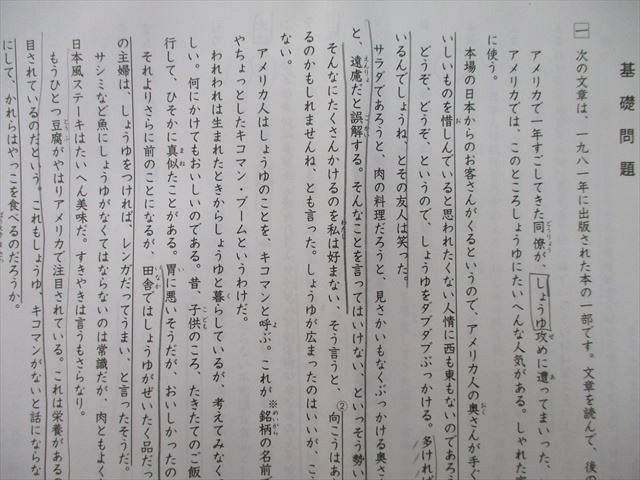 基礎問題
一 次の文章は、一九八一年に出版された本の一部です。文章を読んで、後の
アメリカで一年すごしてきた同僚が、しょうゆ攻めに遭ってまいった、
アメリカでは、このところしょうゆにたいへんな人気がある。しゃれた
に使う。
本場の日本からのお客さんがくるというので、アメリカ人の奥さんが手ぐ
いしいものを惜しんでいると思われたくない人情に西も東もないのであろう
どうぞ、どうぞ、というので、しょうゆをダブダブぶっかける。多ければ
いるんでしょうね、とその友人は笑った。
サラダであろうと、肉の料理だろうと、見さかいもなくぶっかける奥さ
と、遠慮だと誤解する。そんなことを言ってはいけない、といっそう勢い
そんなにたくさんかけるのを私は好まない、そう言うと、②向こうはあ
るのかもしれませんね、とも言った。しょうゆが広まったのはいいが、こ
ない。
アメリカ人はしょうゆのことを、キコマンと呼ぶ。これが、※銘柄の名前で
やちょっとしたキコマン・ブームというわけだ。
われわれは生まれたときからしょうゆと暮らしているが、考えてみなく
しい。何にかけてもおいしいのである。昔、子供のころ、たきたてのご飯
行して、ひそかに真似たことがある。胃に悪いそうだが、おいしかったの
それよりさらに前のことになるが、田舎ではしょうゆがぜいたく品だっ
の主婦は、しょうゆをつければ、レンガだってうまい、と言ったそうだ。
サシミなど魚にしょうゆがなくてはならないのは常識だが、肉ともよく
日本風ステーキはたいへん美味だ。すきやきは言うもさらなり。
もうひとつ豆腐がやはりアメリカで注目されている。これは栄養がある
目されているのだという。これもしょうゆ、キコマンがないと話にならな
にして、かれらはやっこを食べるのだろうか。